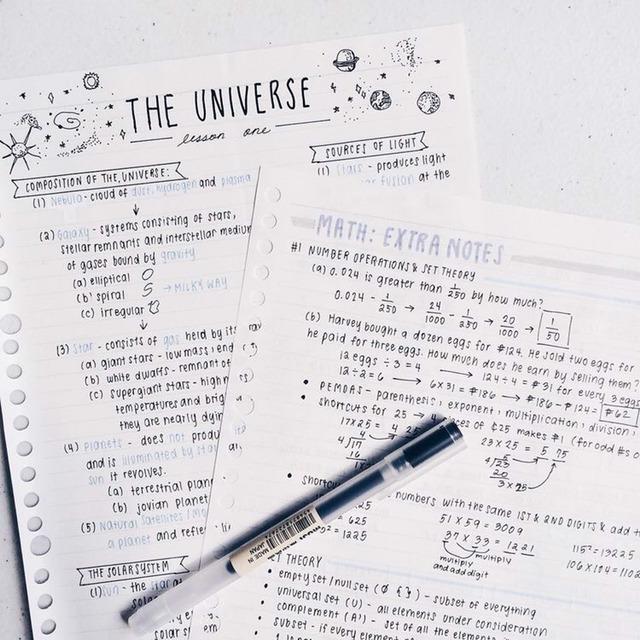 THE UNIVERSE
lesson one
COMPOSITION OF THE UNIVERSE:
(1) Nebula - cloud of dust, hydrogen and plasma
(2) Galaxy - systems consisting of stars,
stellar remnants and interstellar medium
of gases bound by gravity
(a) elliptical
(b) spiral → MILKY WAY
(c) irregular
(3) Star - consists of gas held by its
(a) giant stars - low mass,
(b) white dwarfs - remnant of
(c) supergiant stars - high
temperatures and
they are nearly
(4) Planets - does not
and is illuminated by
sun it revolves.
(a) terrestrial
(b) jovian planet
(5) Natural Satellites
a planet and
THE SOLAR SYSTEM
(1) Sun - the star
SOURCES OF LIGHT
(1) Stars - produces light
fusion at the
MATH: EXTRA NOTES
#1 NUMBER OPERATIONS & SET THEORY
(a) 0.024 is greater than 1/250 by how much?
0.024 - 1/250 → 24/1000 - 1/250 → 20/1000 → 1/50
(b) Harvey bought a dozen eggs for ₱124. He sold two eggs for
he paid for three eggs. How much does he earn by selling them?
12 eggs ÷ 3 = 4 → 124 ÷ 4 = ₱31 for every 3 eggs
12 ÷ 2 = 6 → 6 x 31 = ₱186 → ₱186 - ₱124 = ₱62
• PEMDAS - parenthesis, exponent, multiplication, division,
• shortcuts for 25 → 4 of ₵25 makes $1 (for odd #s
17 x 25 = 4 25
4√17
16
23 x 25 = 5 75
4√23
20
3 x 25
• numbers with the same 1ST & 2ND DIGITS & add
625
= 1225
51 x 59 = 3009
37 x 33 = 1221
multiply
and add digit
multiply
115² = 13225
MADE IN
JAPAN
SET THEORY
• empty set / null set (∅ { }) - subset of everything
• universal set (U) - all elements under consideration
• complement (A') - set of all the elements
• subset - if every element